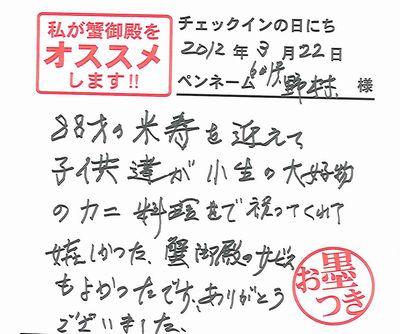 私が蟹御殿を
オススメ
します!!
チェックインの日にち
2012年3月22日
ペンネーム 野村 様
88才の米寿を迎えて
子供達が小生の大好物
のカニ料理をで祝ってくれて
嬉しかった、蟹御殿のサービス
もよかったです、ありがとう
ございました、
お墨つき